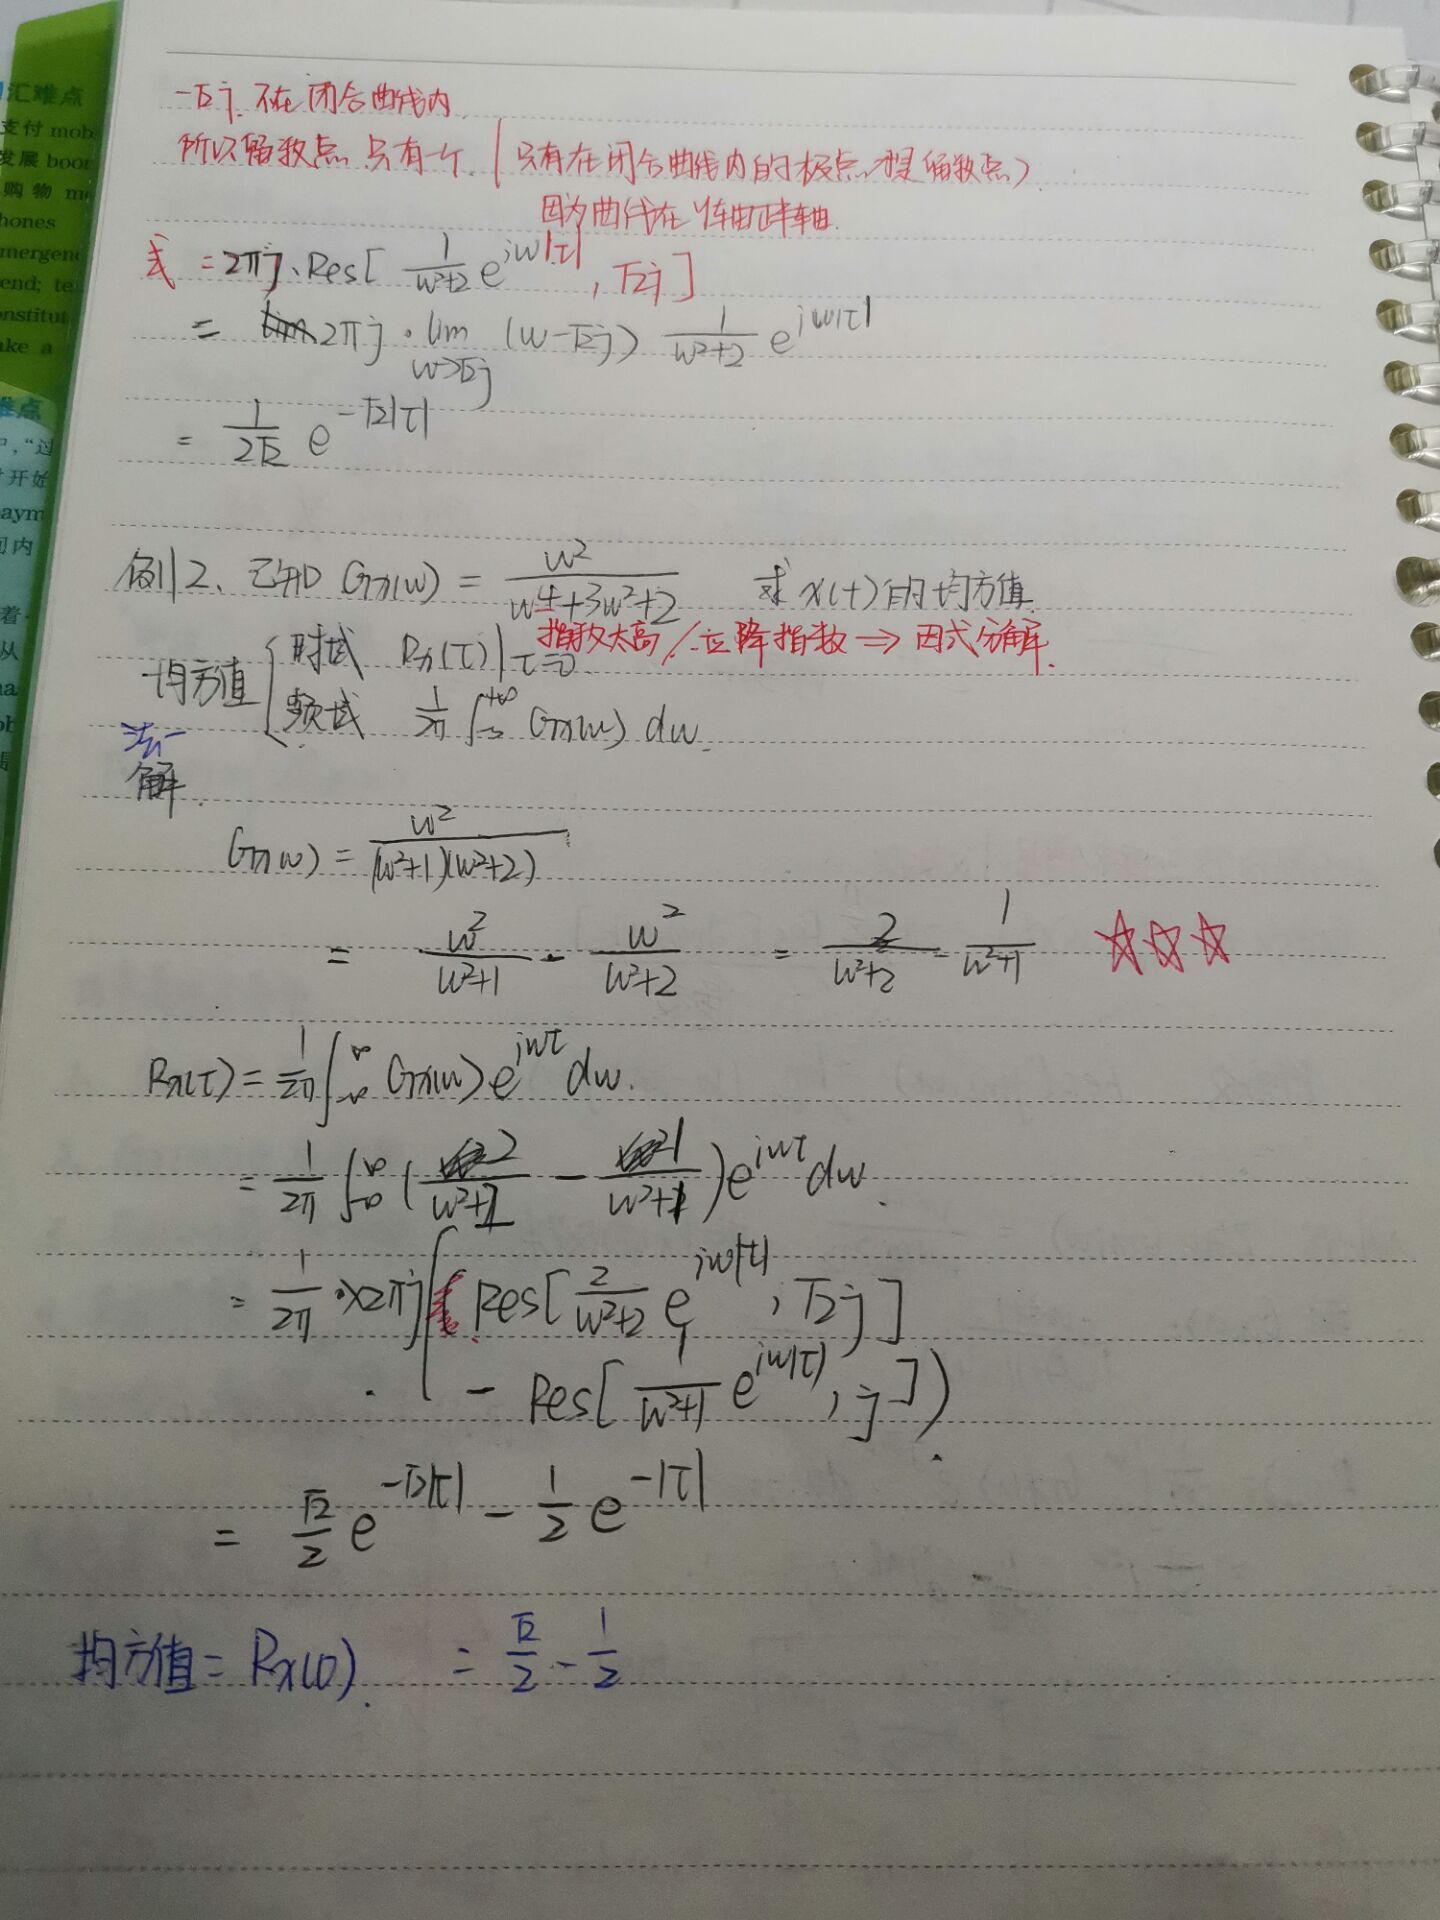 汇难点
支付 mob
发展 boor
购物 m
hones
mergen
end; te
onstitut
ake a
难点
开始
paym
内
着
从
-√2j 不在闭合曲线内
所以留数点 只有一个 (只有在闭合曲线内的极点才是留数点)
因为曲线在Y轴正半轴
= 2πj·Res[ 1/(w²+2) e^{jw|τ|}, √2j ]
= 2πj · lim_{w→√2j} (w-√2j) 1/(w²+2) e^{jw|τ|}
= 1/(2√2) e^{-√2|τ|}
例2、已知 Gx(w) = w²/(w⁴+3w²+2) 求x(t)的均方值.
指数太高/立降指数⇒因式分解.
均方值 { 时域 Rx(τ)|τ=0
频域 1/2π ∫_{-∞}^{+∞} Gx(w) dw.
法一
解.
Gx(w) = w²/((w²+1)(w²+2))
= w²/(w²+1) - w²/(w²+2) = 2/(w²+2) - 1/(w²+1) ☆☆☆
Rx(τ) = 1/2π ∫_{-∞}^{∞} Gx(w) e^{jwτ} dw.
= 1/2π ∫_{-∞}^{∞} (2/(w²+2) - 1/(w²+1)) e^{jwτ} dw.
= 1/2π ·×2πj ( Res[ 2/(w²+2) e^{jw|τ|}, √2j ]
- Res[ 1/(w²+1) e^{jw|τ|}, j ] ).
= √2/2 e^{-√2|τ|} - 1/2 e^{-|τ|}
均方值 = Rx(0). = √2/2 - 1/2